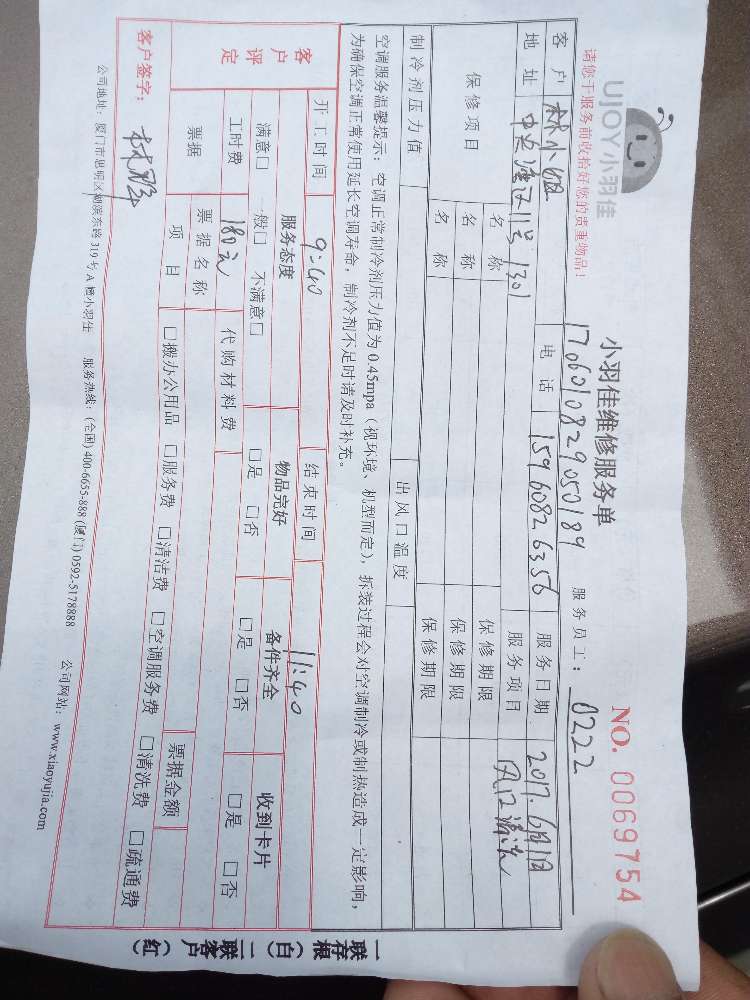 UJOY小羽佳
小羽佳维修服务单
NO. 0069754
请您于服务前收拾好您的贵重物品!
1706010829050189
服务员工: 0222
客户 林小姐 电话 15960826356 服务日期 2017.6月1日
地址 11号1301 服务项目 风口清洗
保修项目 名称 保修期限
名称 保修期限
名称 保修期限
制冷剂压力值 出风口温度
空调服务温馨提示: 空调正常制冷剂压力值为0.45mpa(视环境、机型而定), 拆装过程会对空调制冷或制热造成一定影响,
为确保空调正常使用延长空调寿命, 制冷剂不足时请及时补充。
开工时间 9:40 结束时间 11:40
客户评定 服务态度 物品完好 备件齐全 收到卡片
满意□ 一般□ 不满意□ □是 □否 □是 □否 □是 □否
工时费 180元 代购材料费
票据 票据名称 票据金额
项目 □搬办公用品 □服务费 □清洁费 □空调服务费 □清洗费 □疏通费
客户签字:
公司地址: 厦门市思明区湖滨东路319号A幢小羽佳 服务热线: (全国) 400-6655-888 (厦门) 0592-5178888 公司网站: www.xiaoyujia.com
一联存根(白) 二联客户(红)